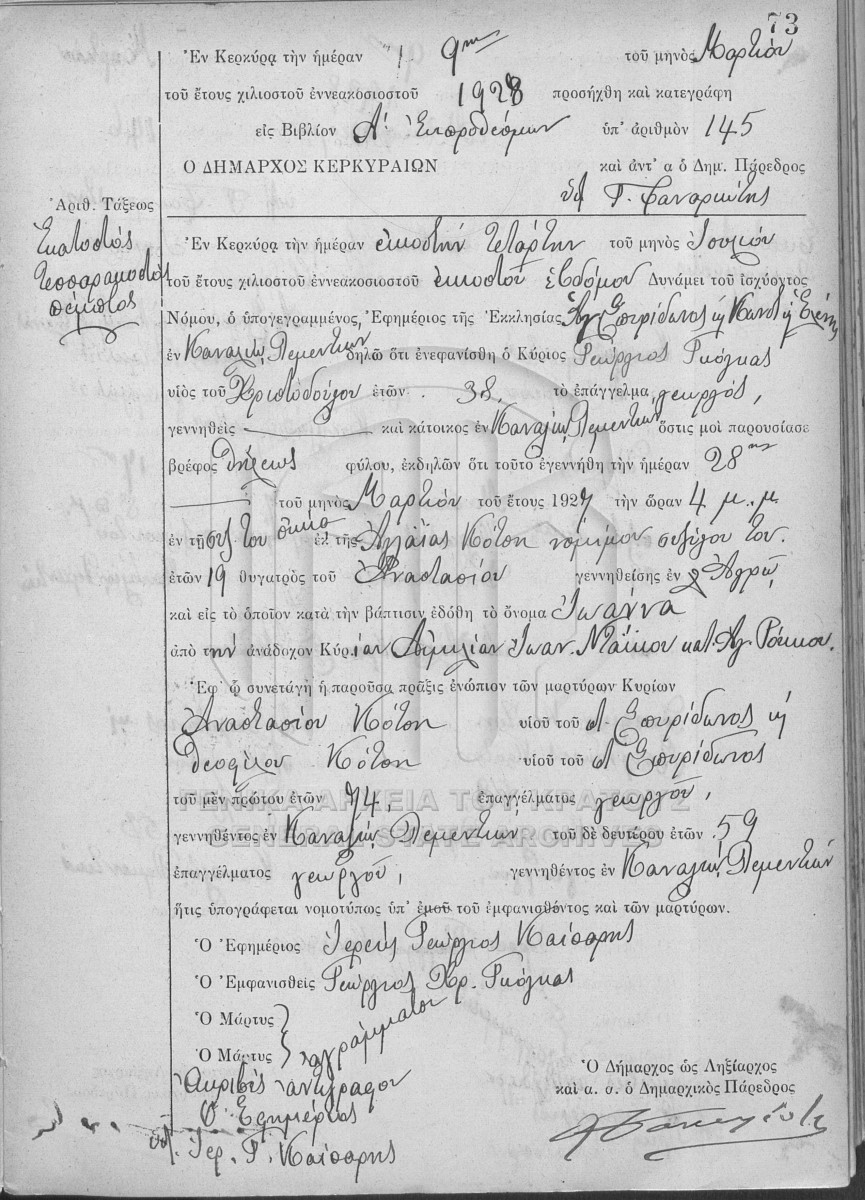 73
Ἐν Κερκύρᾳ τὴν ἡμέραν 9ην τοῦ μηνὸς Μαρτίου
τοῦ ἔτους χιλιοστοῦ ἐννεακοσιοστοῦ 1928 προσήχθη καὶ κατεγράφη
εἰς Βιβλίον Α' Ἐκπροθέσμων ὑπ' ἀριθμὸν 145
Ὁ ΔΗΜΑΡΧΟΣ ΚΕΡΚΥΡΑΙΩΝ καὶ ἀντ' α ὁ Δημ. Πάρεδρος
Γ. Φαναριώτης
Ἀριθ. Τάξεως
Ἑκατοστὸς
Τεσσαρακοστὸς
πέμπτος
Ἐν Κερκύρᾳ τὴν ἡμέραν εἰκοστὴν τετάρτην τοῦ μηνὸς Ἰουλίου
τοῦ ἔτους χιλιοστοῦ ἐννεακοσιοστοῦ εἰκοστοῦ ἑβδόμου Δυνάμει τοῦ ἰσχύοντος
Νόμου, ὁ ὑπογεγραμμένος, Ἐφημέριος τῆς Ἐκκλησίας Ἁγ. Σπυρίδωνος ἢ Κωνστ. ἢ Ἑλένης
ἐν δηλῶ ὅτι ἐνεφανίσθη ὁ Κύριος Γεώργιος Γκόγκας
υἱὸς τοῦ Χριστοδούλου ἐτῶν 38, τὸ ἐπάγγελμα γεωργός,
γεννηθεὶς καὶ κάτοικος ἐν ὅστις μοὶ παρουσίασε
βρέφος θήλεως φύλου, ἐκδηλῶν ὅτι τοῦτο ἐγεννήθη τὴν ἡμέραν 28ην
τοῦ μηνὸς Μαρτίου τοῦ ἔτους 1927 τὴν ὥραν 4 μ.μ.
ἐν τῇ οἰκίᾳ του ἐκ τῆς Ἀγλαΐας Κότση νομίμου συζύγου του.
ἐτῶν 19 θυγατρὸς τοῦ Ἀναστασίου γεννηθείσης ἐν
καὶ εἰς τὸ ὁποῖον κατὰ τὴν βάπτισιν ἐδόθη τὸ ὄνομα Ἰωάννα
ἀπὸ τὴν ἀνάδοχον Κύρ.ίαν Αἰμιλίαν Ἰωαν. κατ. Ἁγ. Ρόκκου.
Ἐφ' ᾧ συνετάγη ἡ παροῦσα πρᾶξις ἐνώπιον τῶν μαρτύρων Κυρίων
Ἀναστασίου Κότση υἱοῦ τοῦ Σπυρίδωνος ἢ
Θεοφίλου Κότση υἱοῦ τοῦ Σπυρίδωνος
τοῦ μὲν πρώτου ἐτῶν 74, ἐπαγγέλματος γεωργοῦ,
γεννηθέντος ἐν τοῦ δὲ δευτέρου ἐτῶν 59
ἐπαγγέλματος γεωργοῦ, γεννηθέντος ἐν
ἥτις ὑπογράφεται νομοτύπως ὑπ' ἐμοῦ τοῦ ἐμφανισθέντος καὶ τῶν μαρτύρων.
Ὁ Ἐφημέριος Ἱερεὺς Γεώργιος Καίσαρης
Ὁ Ἐμφανισθεὶς Γεώργιος Χρ. Γκόγκας
Ὁ Μάρτυς
Ὁ Μάρτυς ἀγράμματοι
Ἀκριβὲς ἀντίγραφον
Ὁ Ἐφημέριος
Ἱερ. Γ. Καίσαρης
Ὁ Δήμαρχος ὡς Ληξίαρχος
καὶ α. α. ὁ Δημαρχικὸς Πάρεδρος
ΓΕΝΙΚΑ ΑΡΧΕΙΑ ΤΟΥ ΚΡΑΤΟΥΣ
GENERAL STATE ARCHIVES